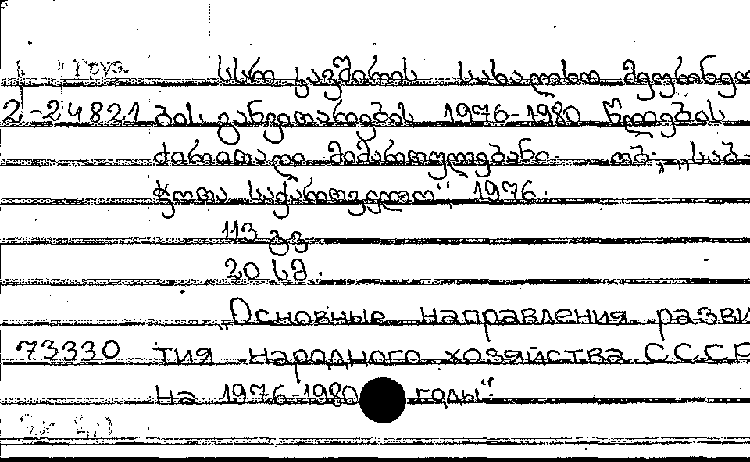 груз. სსრ კავშირის სახალხო მეურნეო
2-24821 ბის განვითარების 1976-1980 წლების
ძირითადი მიმართულებანი. თბ., „საბ-
ჭოთა საქართველო“, 1976.
113 გვ
20 სმ.
„Основные направления разви
73330 тия народного хозяйства СССР
на 1976-1980 годы“.